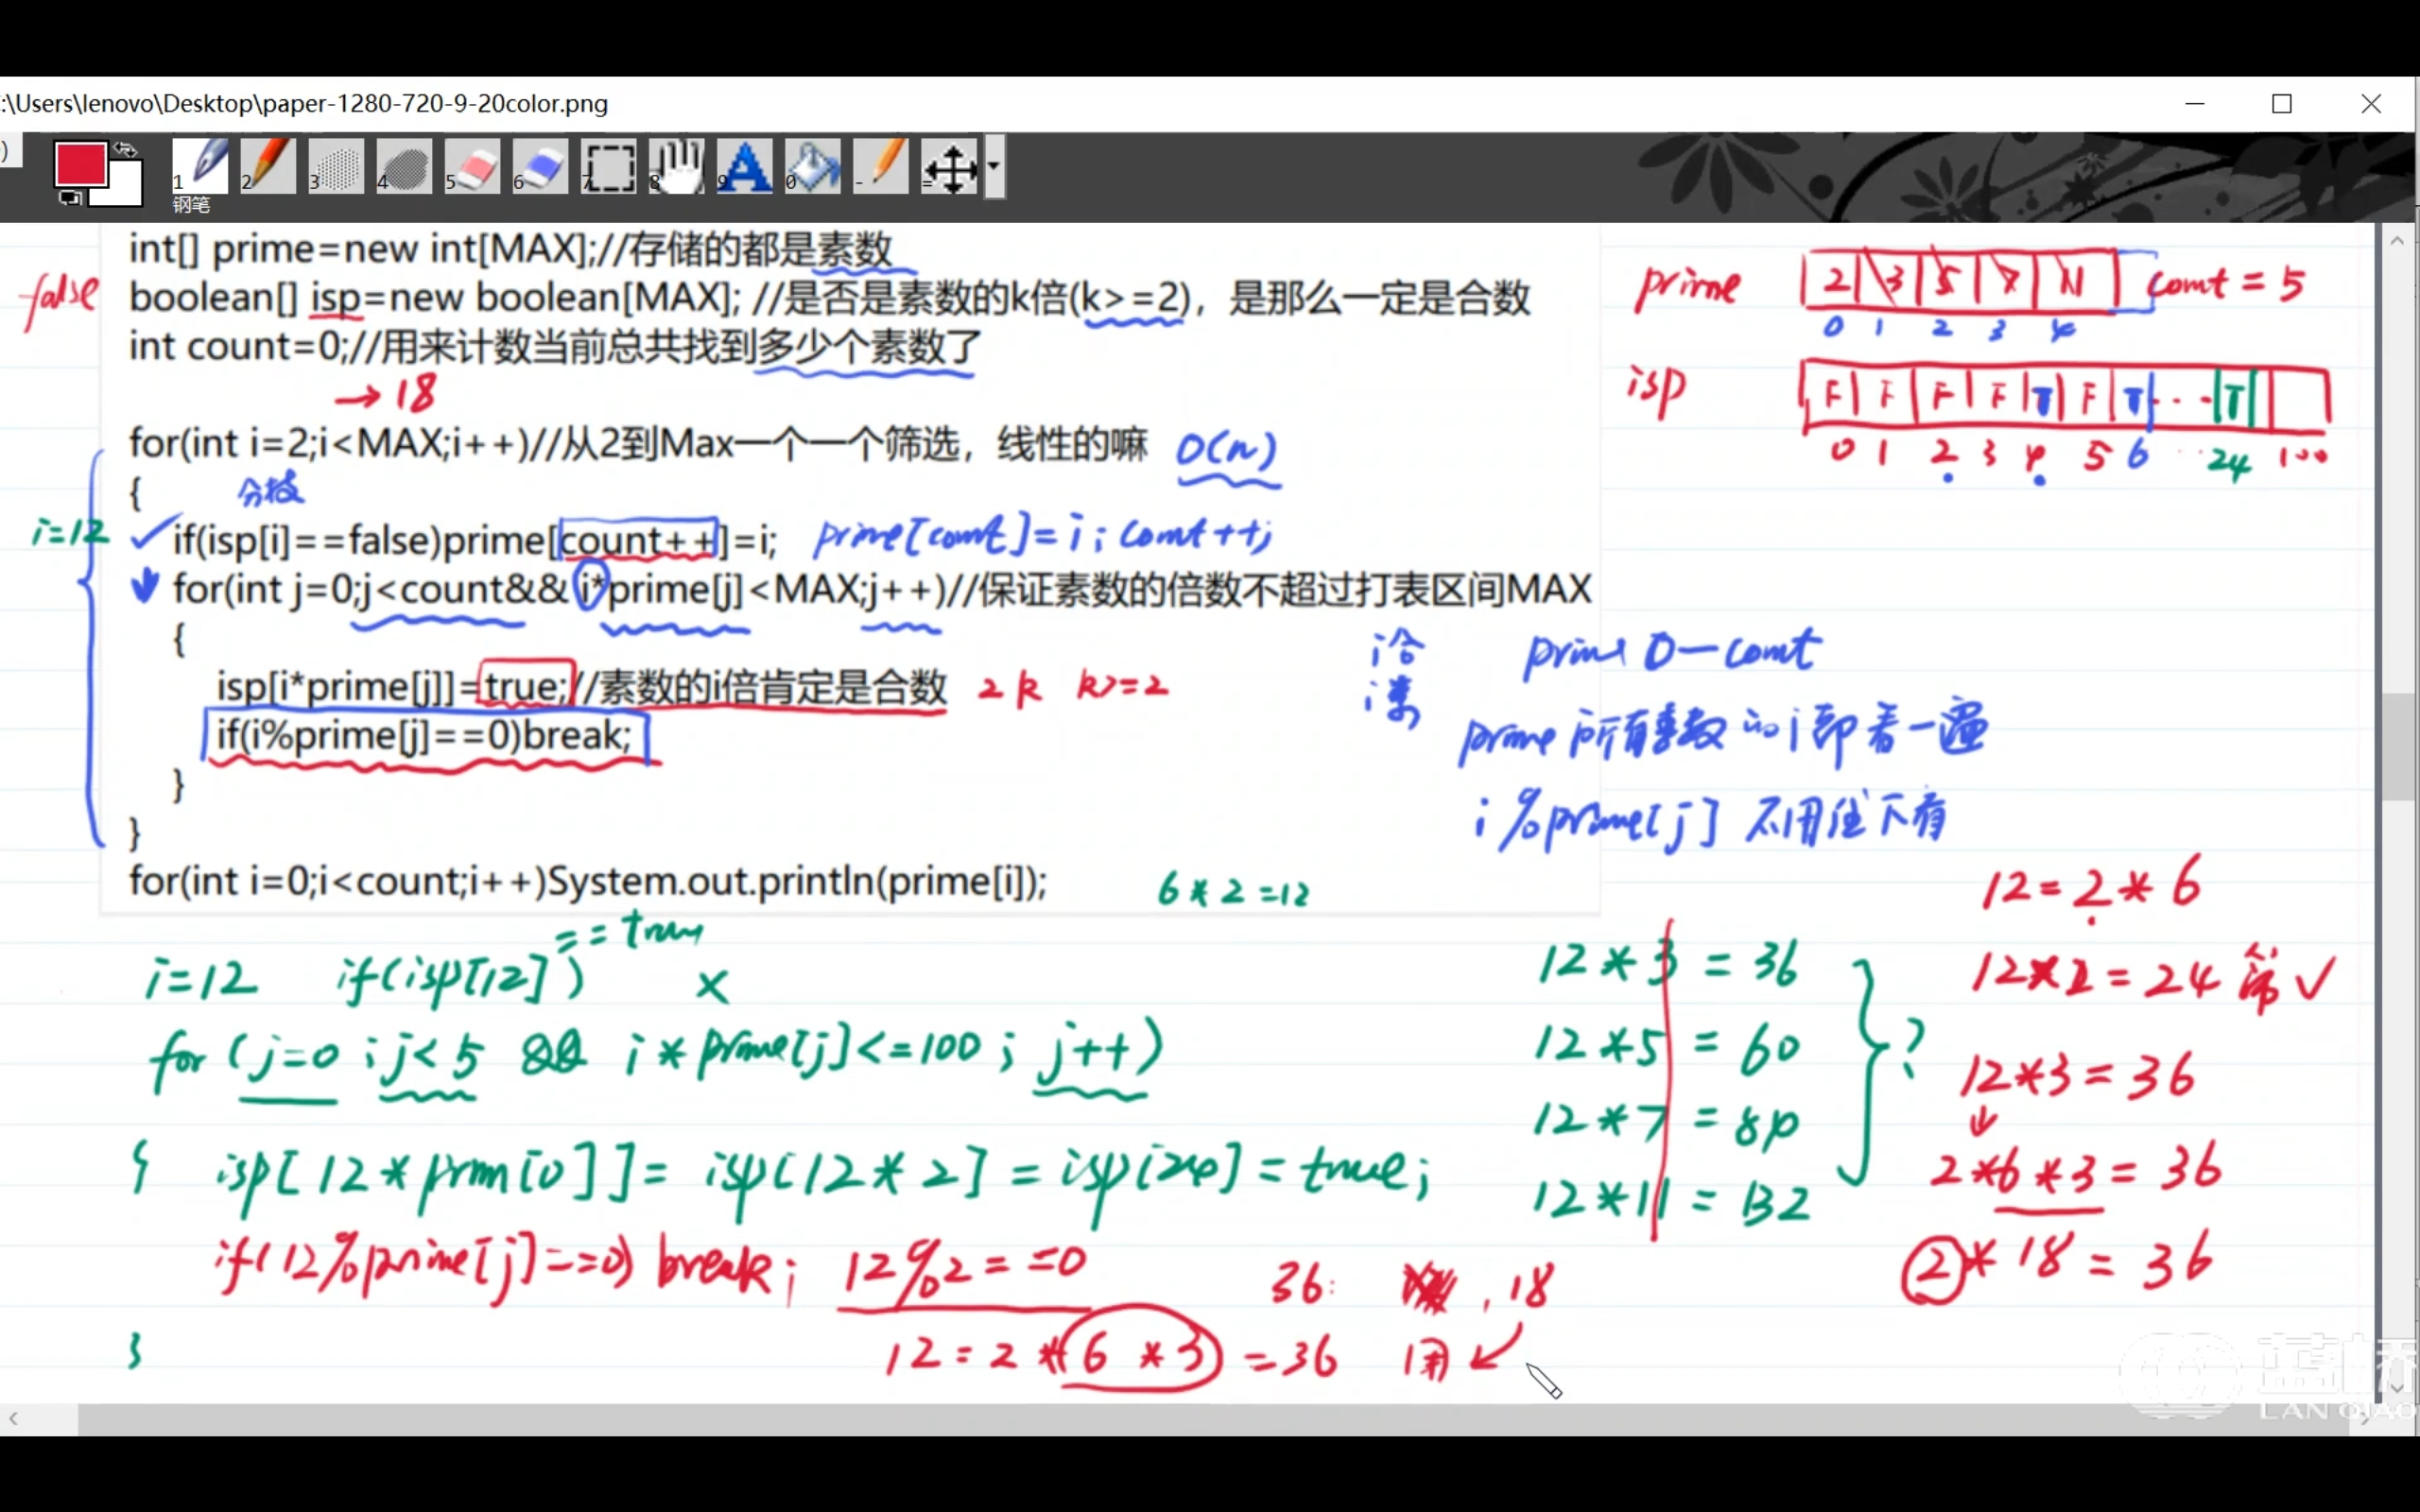 :\Users\lenovo\Desktop\paper-1280-720-9-20color.png
)
1 2 3 4 5 6 7 8 9 0 - =
钢笔
int[] prime=new int[MAX];//存储的都是素数
false
boolean[] isp=new boolean[MAX]; //是否是素数的k倍(k>=2)，是那么一定是合数
int count=0;//用来计数当前总共找到多少个素数了
→18
for(int i=2;i<MAX;i++)//从2到Max一个一个筛选，线性的嘛 O(n)
{ 分枝
i=12 ✓ if(isp[i]==false)prime[count++]=i; prime[count]=i; count++;
for(int j=0;j<count&& i*prime[j]<MAX;j++)//保证素数的倍数不超过打表区间MAX
{
isp[i*prime[j]]=true;//素数的i倍肯定是合数 2k k>=2
if(i%prime[j]==0)break;
}
}
for(int i=0;i<count;i++)System.out.println(prime[i]);
prime 2 3 5 7 11 count = 5
0 1 2 3 4
isp F F F F T F T ... T
0 1 2 3 4 5 6 ... 24 100
i合 prime 0—count
i素 prime 所有素数的i都看一遍
i%prime[j] 不用往下看
6*2=12
12=2*6
==true
i=12 if(isp[12]) ×
for (j=0;j<5 && i*prime[j]<=100; j++)
{ isp[12*prim[0]]= isp[12*2]=isp[24]=true;
if(12%prime[j]==0) break; 12%2==0
}
12=2*(6*3)=36
36: ,18
用
12*3=36
12*5=60
12*7=84
12*11=132
?
12*2=24 筛✓
12*3=36
2*6*3=36
2*18=36
蓝桥
LAN QIAO